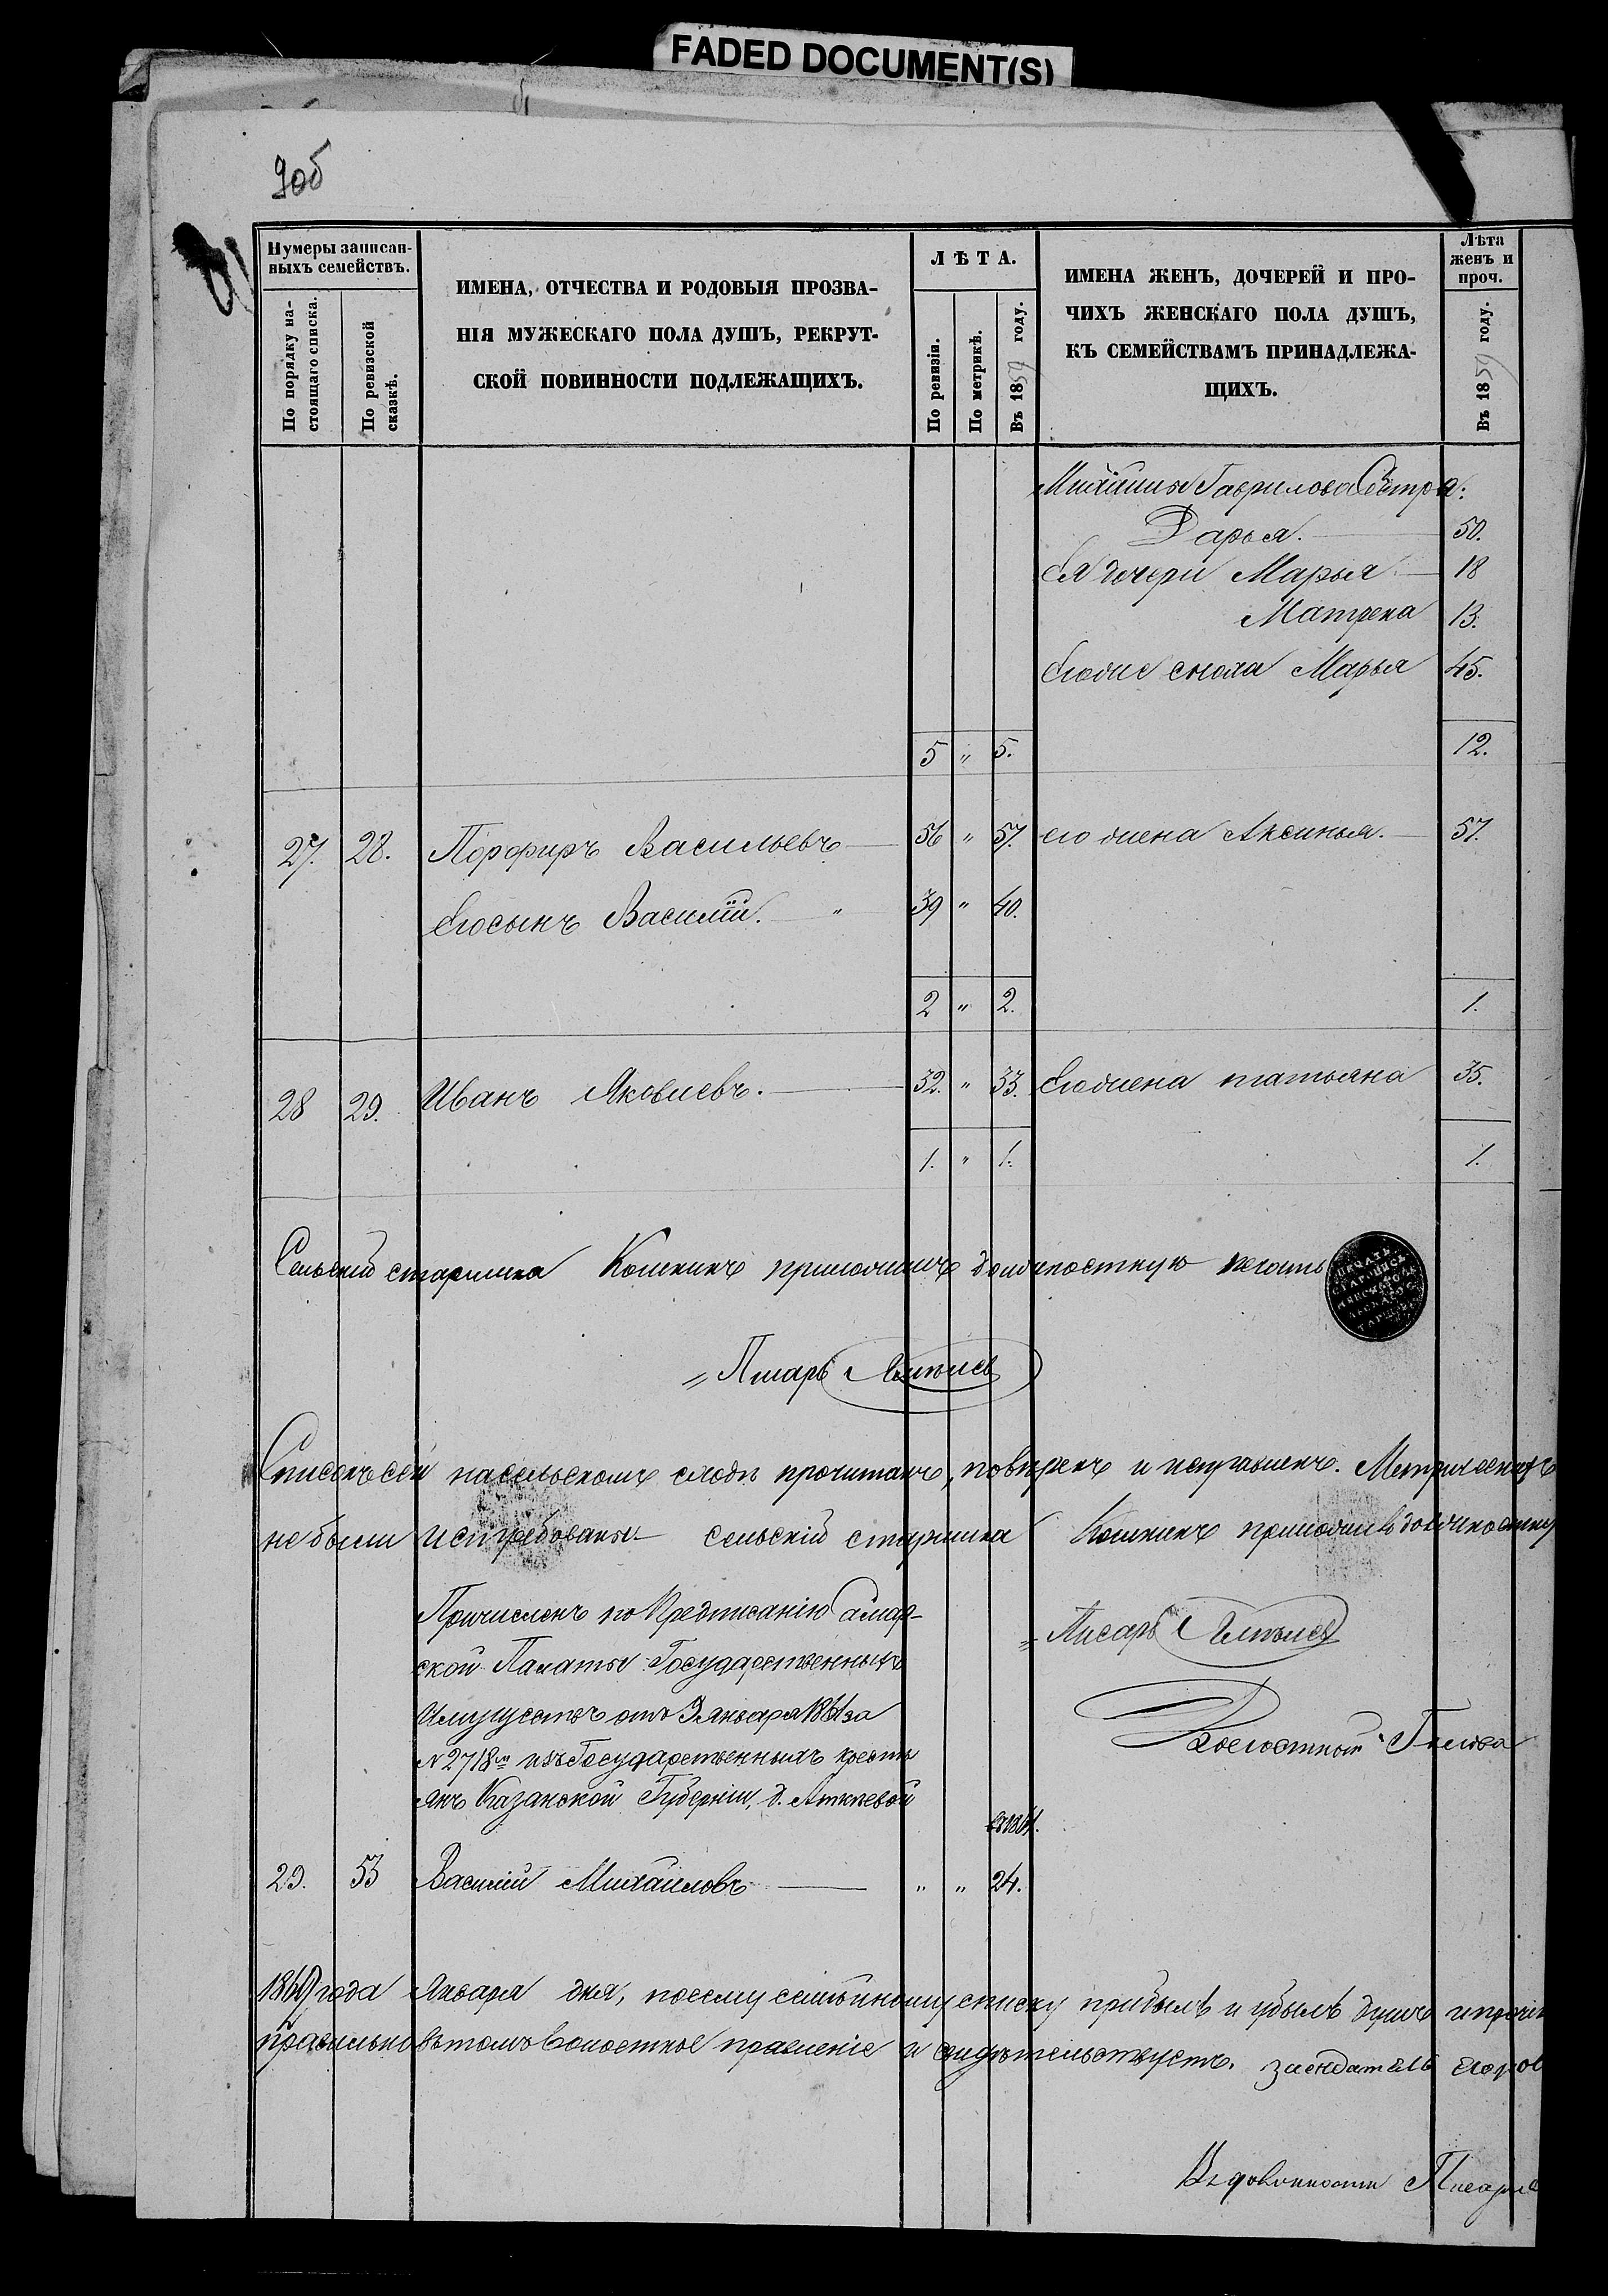 FADED DOCUMENT(S)
9об
Нумеры записан-
ныхъ семействъ.
По порядку на-
стоящаго списка.
По ревизской
сказкѣ.
ИМЕНА, ОТЧЕСТВА И РОДОВЫЯ ПРОЗВА-
НІЯ МУЖЕСКАГО ПОЛА ДУШЪ, РЕКРУТ-
СКОЙ ПОВИННОСТИ ПОДЛЕЖАЩИХЪ.
ЛѢТА.
По ревизіи.
По метрикѣ.
Въ 1859 году.
ИМЕНА ЖЕНЪ, ДОЧЕРЕЙ И ПРО-
ЧИХЪ ЖЕНСКАГО ПОЛА ДУШЪ,
КЪ СЕМЕЙСТВАМЪ ПРИНАДЛЕЖА-
ЩИХЪ.
Лѣта
женъ и
проч.
Въ 1859 году.
Гаврилова Сестра:
Дарья. 50.
Ея дочери Марья 18
Матрена 13.
сноха Марья 45.
5 " 5. 12.
27. 28. Порфиръ Васильевъ 56 " 57. его жена Аксинья. 57.
Его сынъ Василій. " 39 " 40.
2 " 2. 1.
28 29. Иванъ Яковлевъ. 32. " 33. Его жена татьяна 35.
1. " 1. 1.
Сельский старшина Кошкинъ приложилъ должностную печать
Писарь
Списокъ сей на сельскомъ сходѣ прочитанъ, повѣренъ и исправленъ.
не были истребованы сельскій старшина Кошкинъ приложилъ должностную
Причисленъ по Предписанію Самар-
ской Палаты Государственныхъ
Имуществъ отъ 3 января 1861 за
N 2718 изъ Государственныхъ крестья
янъ Казанской Губерніи, д. Аткѣевой
Писарь
Волостной Голова
въ 1861.
29. 53 Василій Михайловъ " " 24.
1860 года Января дня, по сему семейному списку прибыль и убыль душъ
правильно въ томъ волостное правленіе и свидѣтельствуетъ. засѣдатель
Писарь